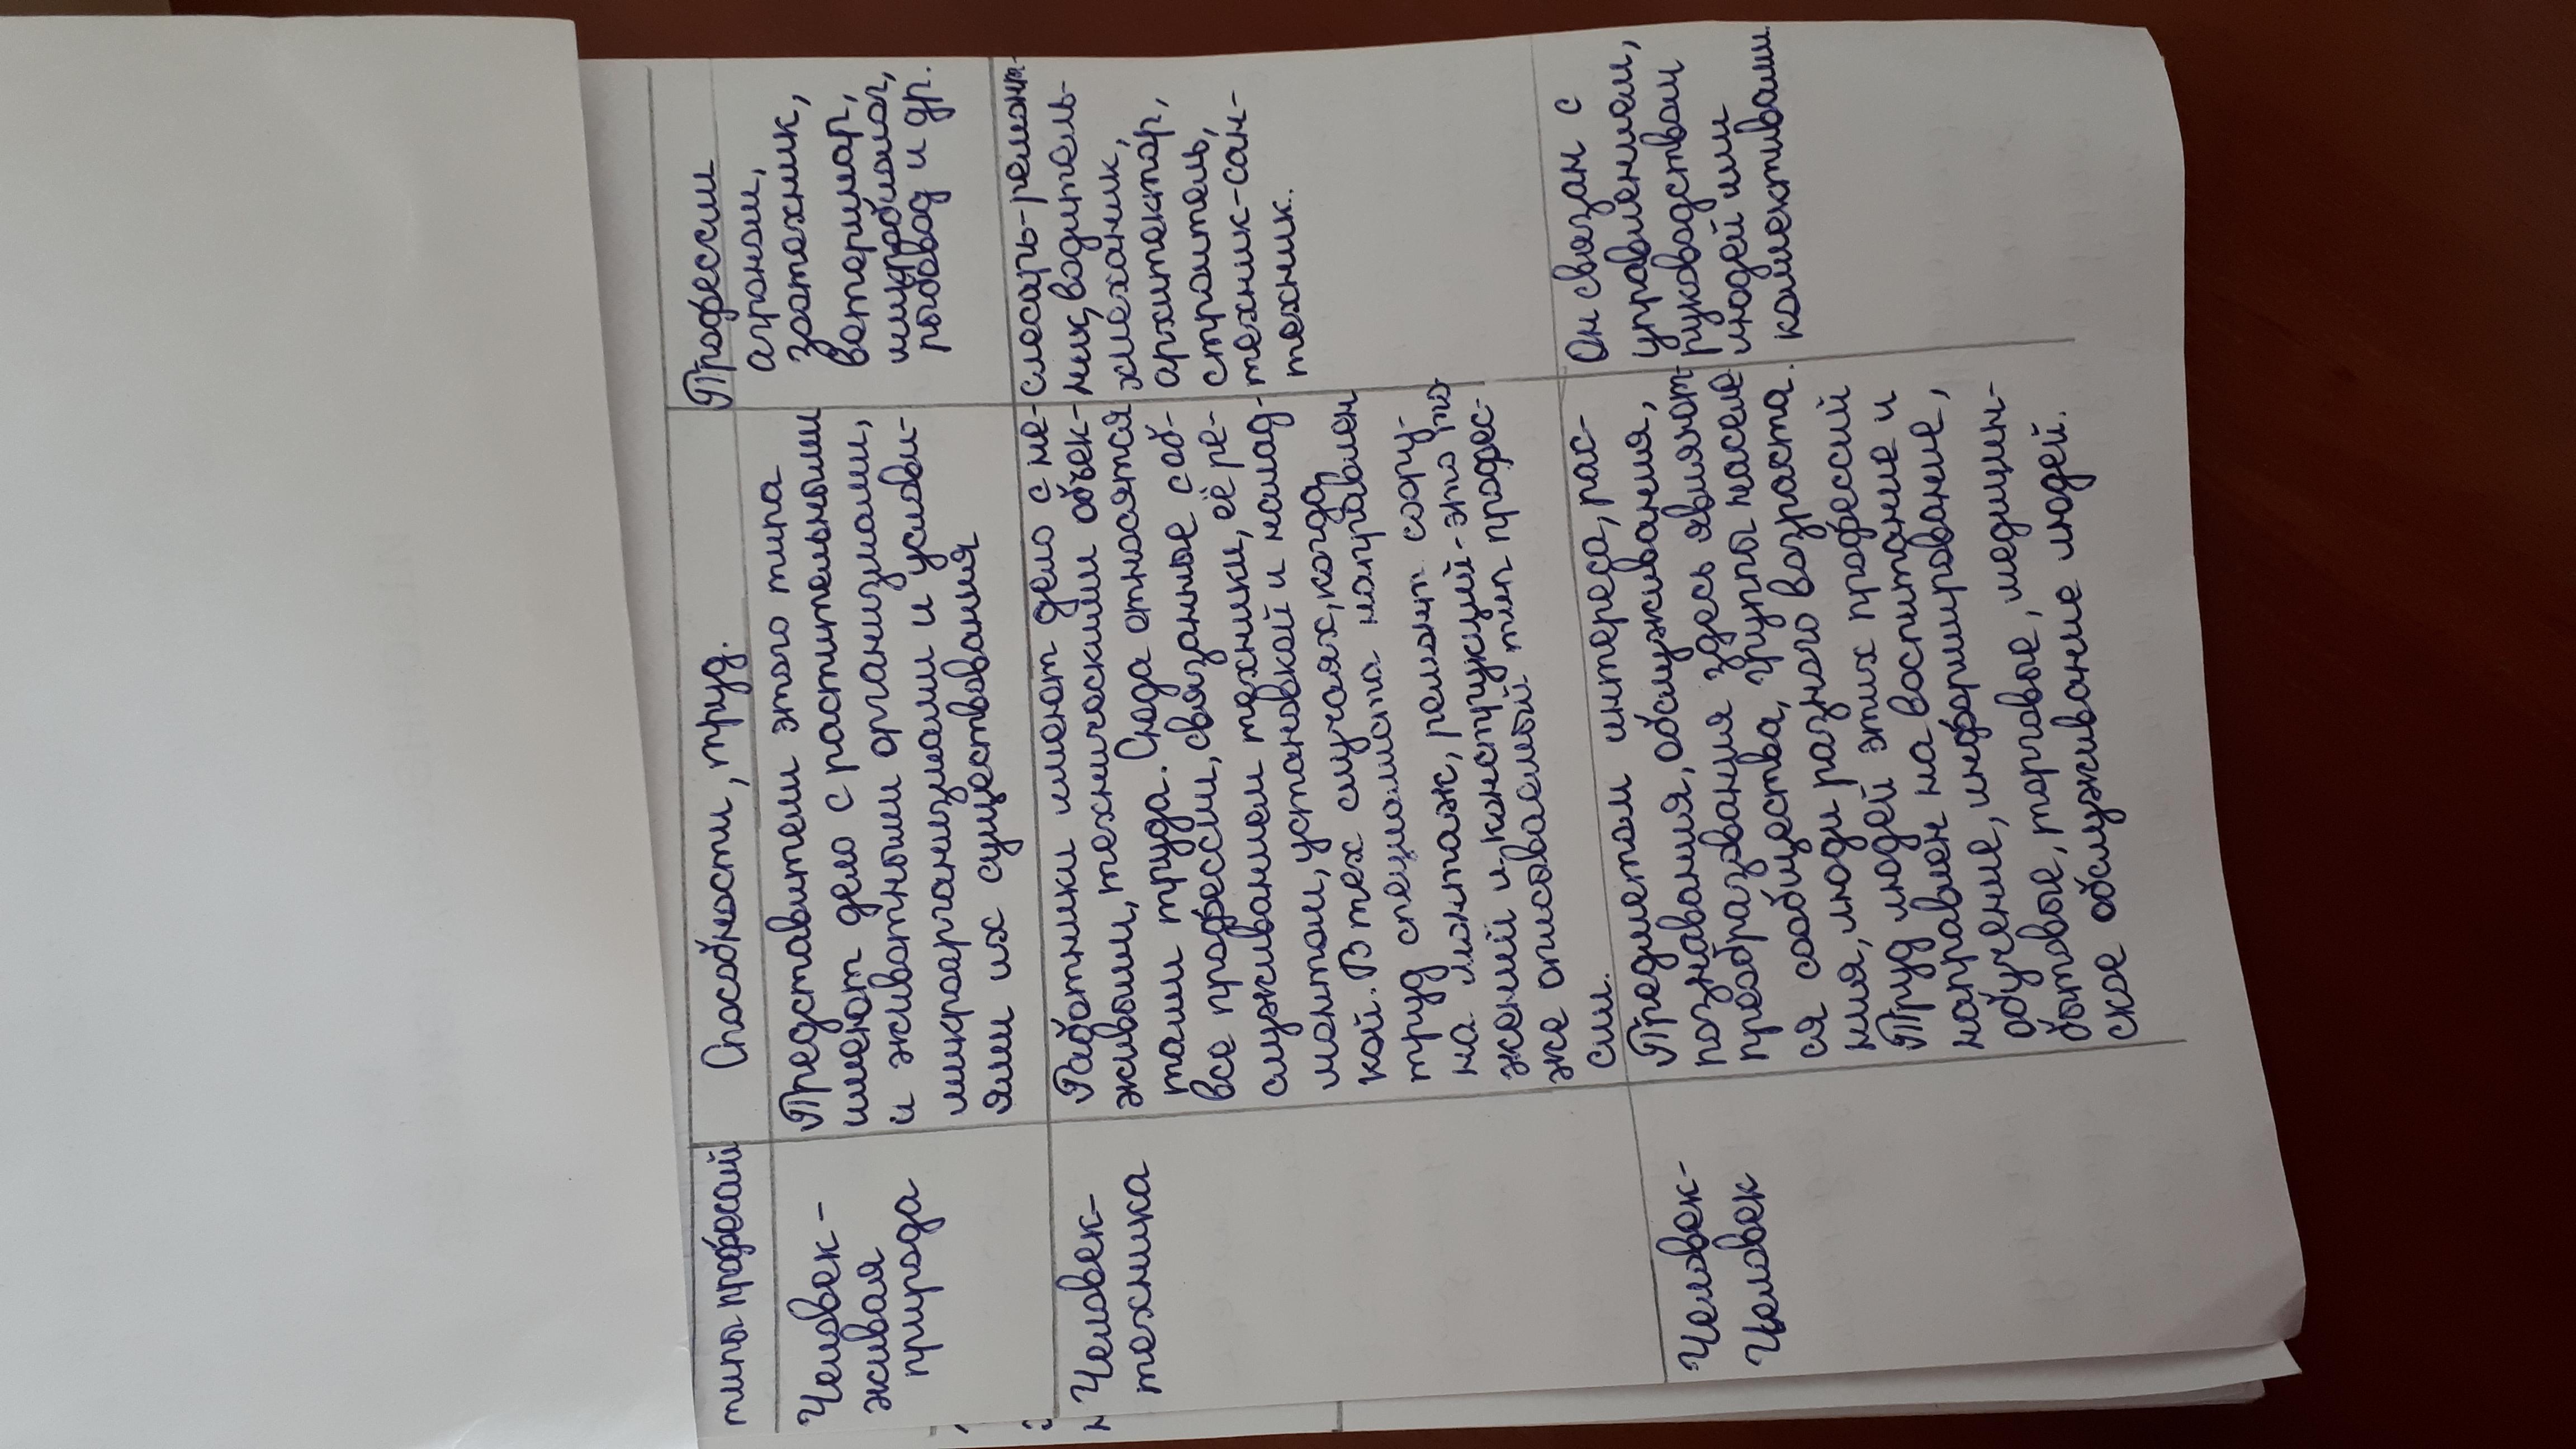 типы професий
Способности, труд.
Профессии
Человек -
живая
природа
Представители этого типа
имеют дело с растительными
и животными организмами,
микроорганизмами и услови-
ями их существования
агроном,
зоотехник,
ветеринар,
микробиолог,
рыбовод и др.
Человек-
техника
Работники имеют дело с не-
живыми, техническими объек-
тами труда. Сюда относятся
все профессии, связанные с об-
служиванием техники, её ре-
монтом, установкой и налад-
кой. В тех случаях, когда
труд специалиста направлен
на монтаж, ремонт соору-
жений и конструкций - это то
же описываемый тип професс-
сии.
слесарь-ремонт-
ник, водитель-
механик,
архитектор,
строитель,
техник-сан-
техник.
Человек-
Человек
Предметом интереса, рас-
познавания, обслуживания,
преобразования здесь являют-
ся сообщества, группы населе
ния, люди разного возраста.
Труд людей этих профессий
направлен на воспитание и
обучение, информирование,
бытовое, торговое, медицин-
ское обслуживание людей.
Он связан с
управлением,
руководством
людей или
коллективами